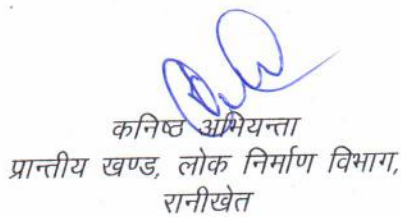 कनिष्ठ अभियन्ता
प्रान्तीय खण्ड, लोक निर्माण विभाग,
रानीखेत